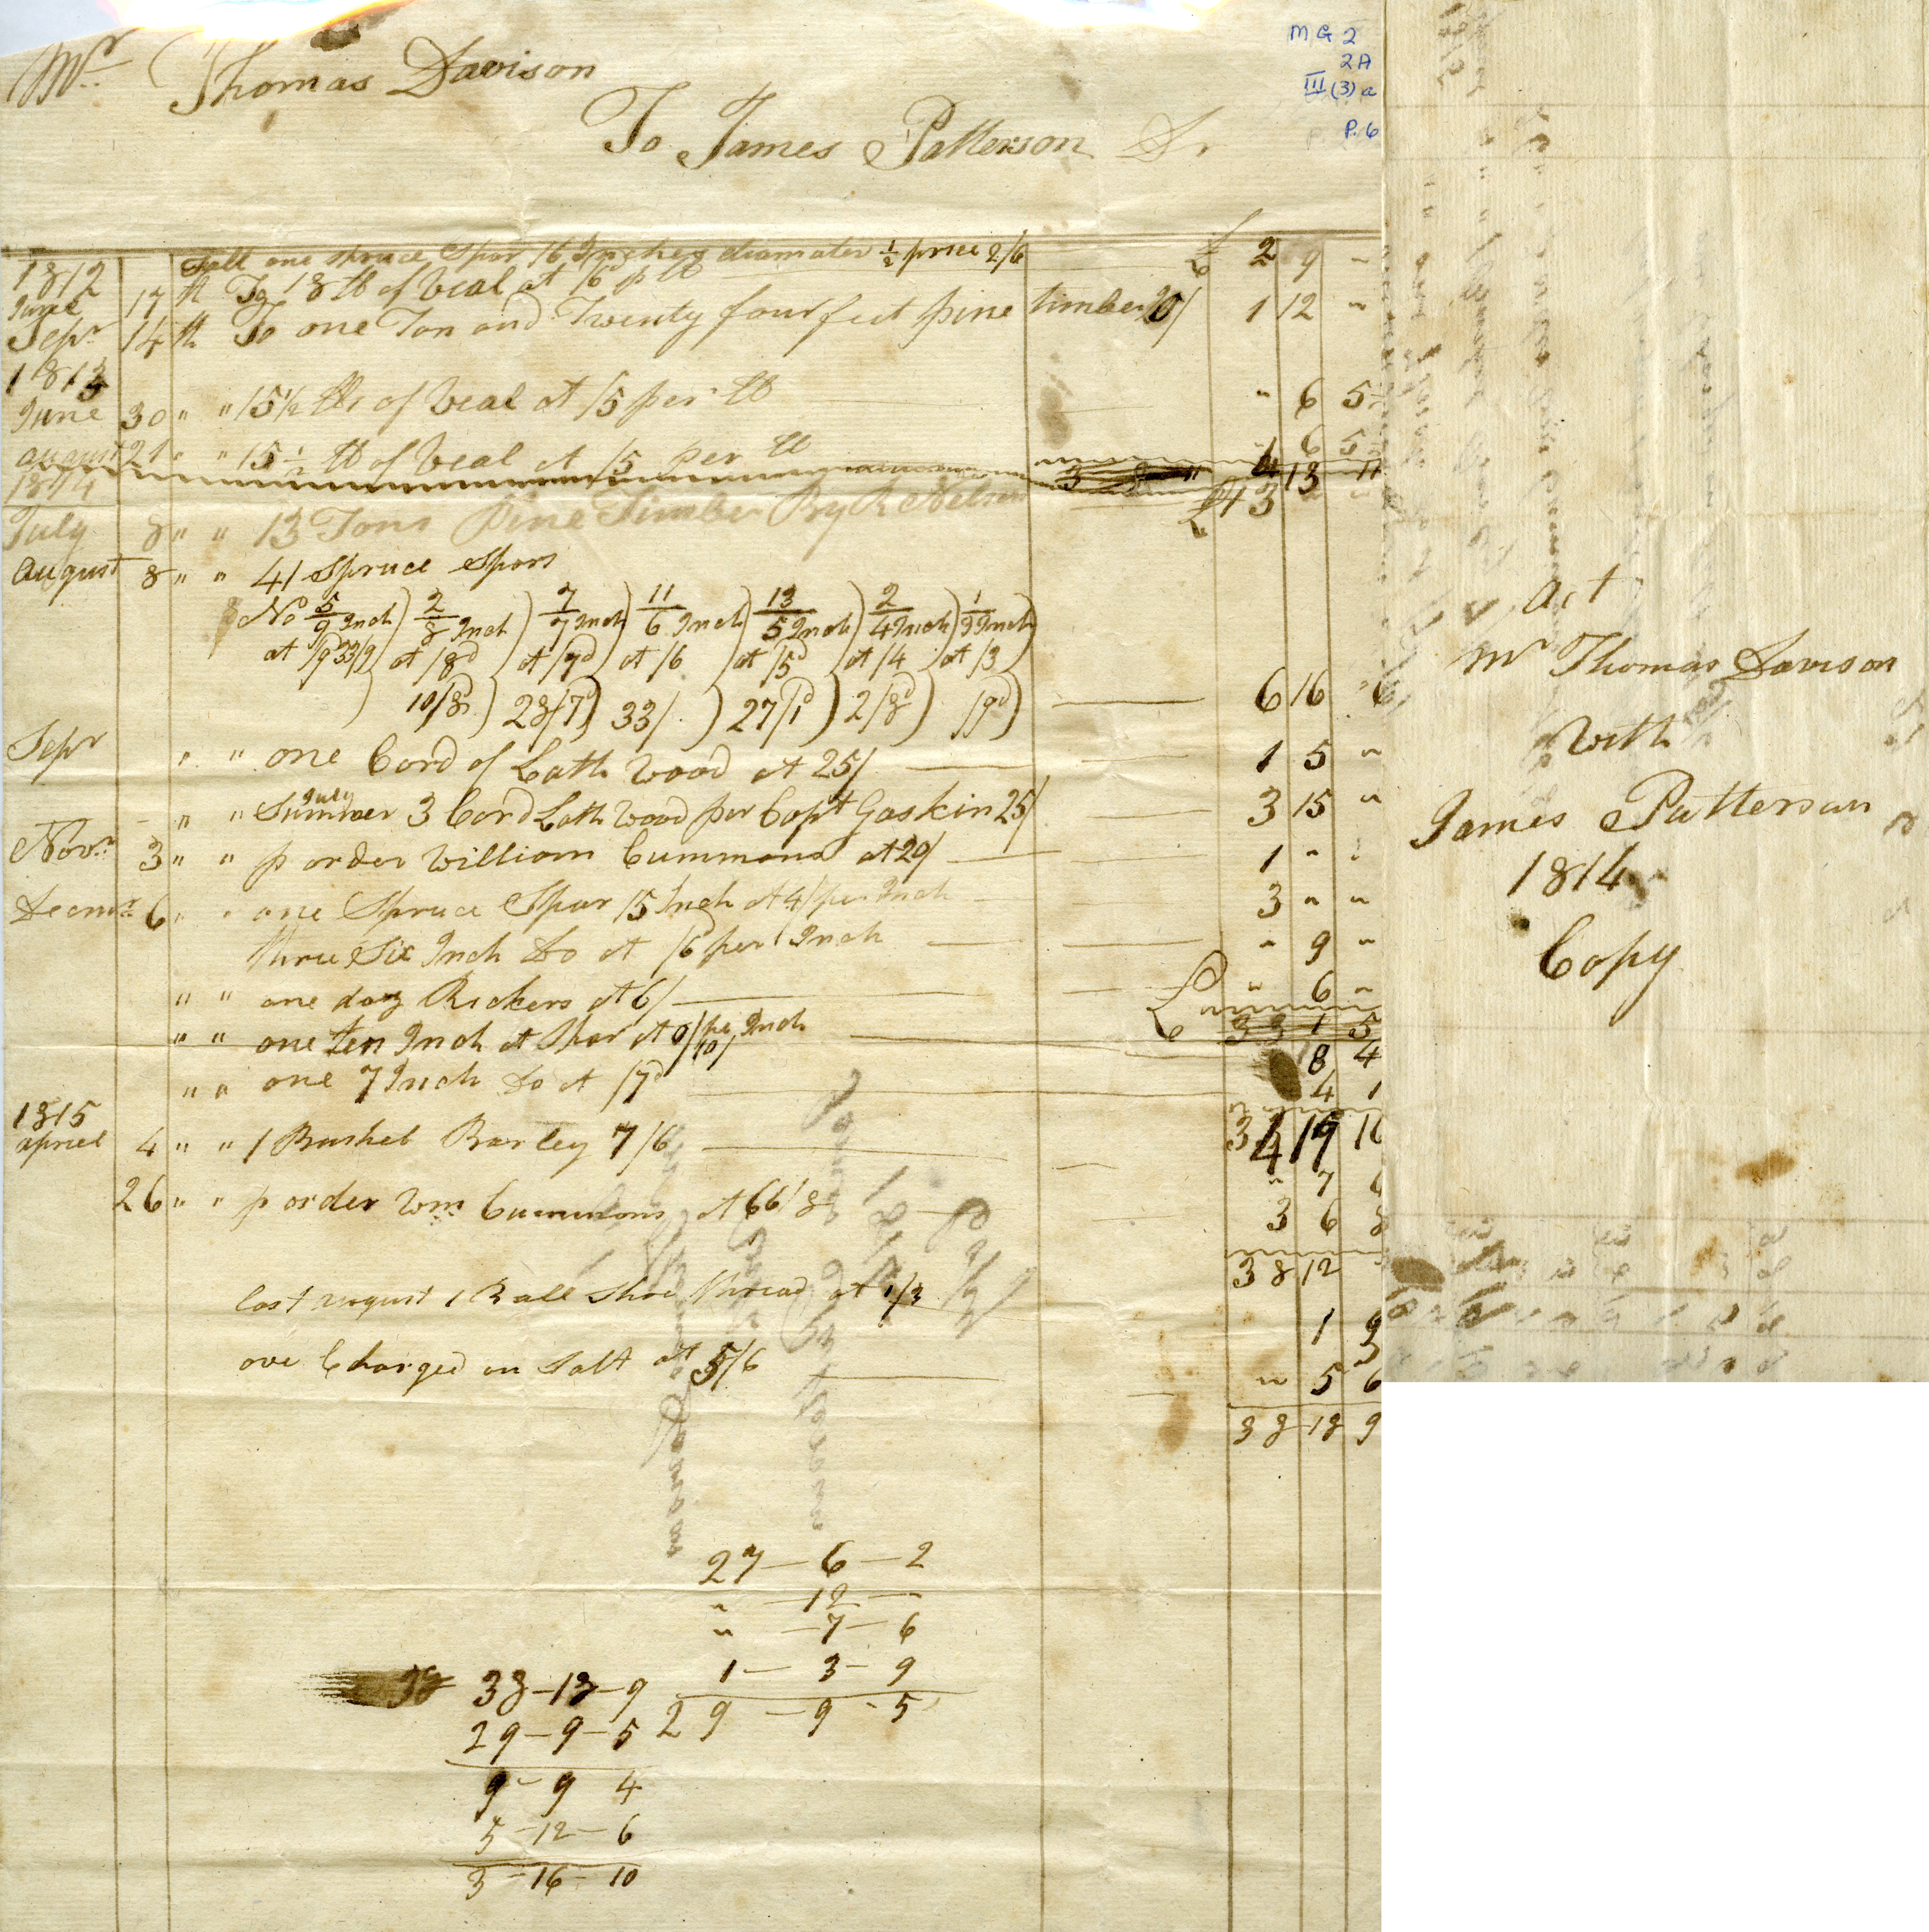 Mr Thomas Davison
To James Patterson Dr
MG 2
2A
III (3) a
P. 6
fall one spruce Spar 16 Inches diamater ½ price 2/6
1812
June 17 th To 18 lb of Veal at /6 p lb £ 2 9 "
Sepr 14 th To one Ton and Twenty four feet pine timber 20/ 1 12 "
1813
June 30 " " 15½ lbs of Veal at /5 per lb " 6 5
august 21 " " 15½ lb of Veal at /5 per lb " 6 5
4 13 11
1814
July 8 " " 13 Tons Pine Timber By R Nelson £ 13 " "
August 8 " " 41 Spruce Spars
No 5/9 Inch) 2/8 Inch) 7/7 Inch) 11/6 Inch) 13/5 Inch) 2/4 Inch) 1/3 Inch)
at /9d 33/9) at /8d) at /7d) at /6) at /5d) at /4) at /3)
10/8) 28/7) 33/) 27/1d) 2/8d) /9d) 6 16 6
Sepr " " one Cord of Lath Wood at 25/ 1 5 "
July
" " Summer 3 Cord Lath Wood per Capt Gaskin 25/ 3 15 "
Novr 3 " " p order William Cummons at 20/ 1 " "
Decmr 6 " " one Spruce Spar 15 Inch at 4/ per Inch 3 " "
three Six Inch Do at /6 per Inch " 9 "
" " one doz Rickers at 6/ £ " 6 "
33 1 5
" " one ten Inch at Spar at 0/10 per Inch 8 4
" " one 7 Inch Do at /7d 4 1
34 19 10
1815
apriel 4 " " 1 Bushel Barley 7/6 " 7 6
26 " " p order Wm Cummons at 66/8 3 6 8
38 12
last august 1 Ball Shoe thread at 1/3 1 3
ove Charged on Salt at 5/6 " 5 6
38 18 9
27 — 6 — 2
" — 12 — "
" — 7 — 6
1 — 3 — 9
29 — 9 - 5
38 - 18 - 9
29 - 9 - 5
9 - 9 4
5 - 12 - 6
3 - 16 - 10
act
Mr Thomas Davison
With
James Patterson
1814
Copy